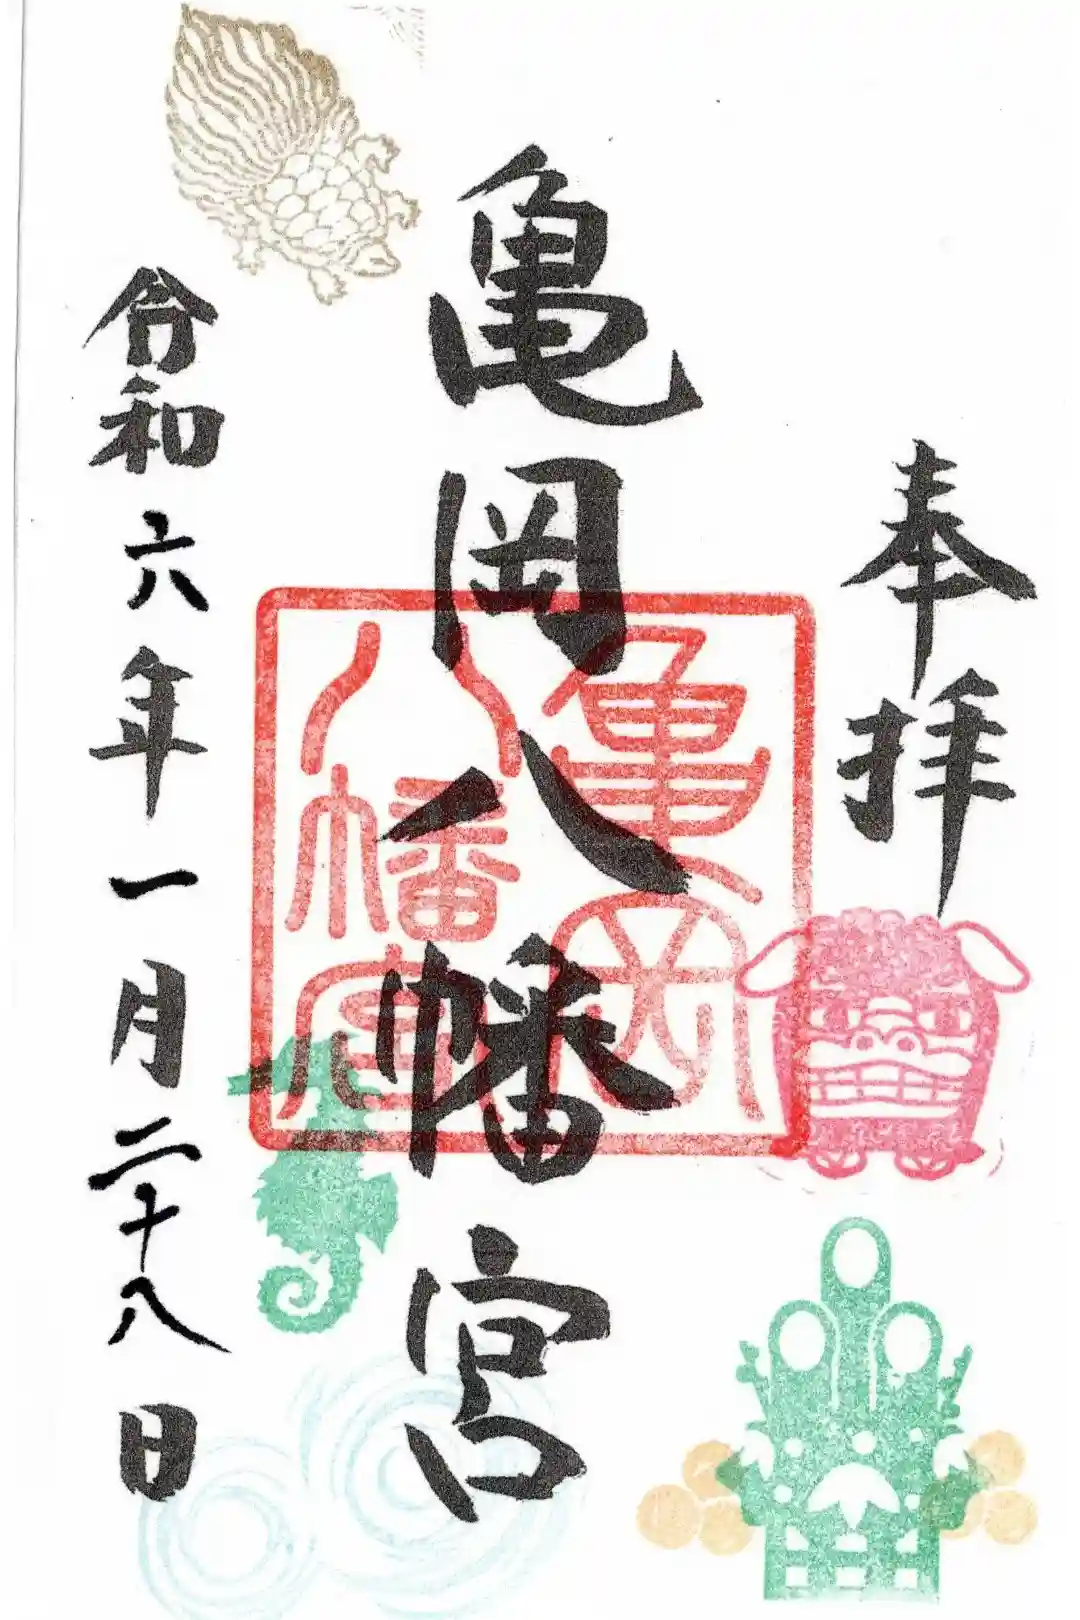 奉拝
亀岡八幡宮
亀岡
八幡宮
令和六年一月二十八日